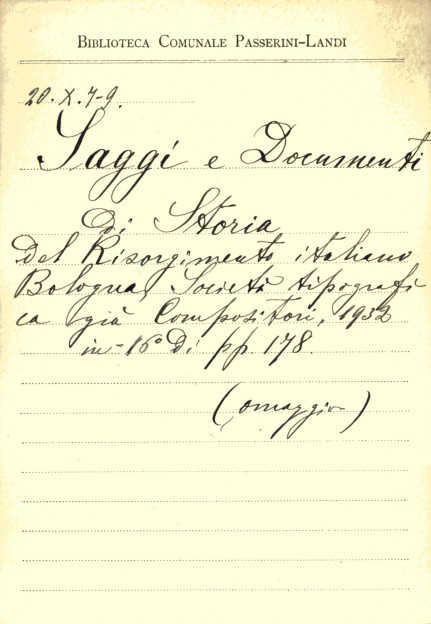 BIBLIOTECA COMUNALE PASSERINI-LANDI
20. X. 7-9.
Saggi e Documenti
Di Storia
Del Risorgimento italiano
Bologna, Società tipografi
ca già Compositori, 1932
in-16° Di pp. 178.
(omaggio)